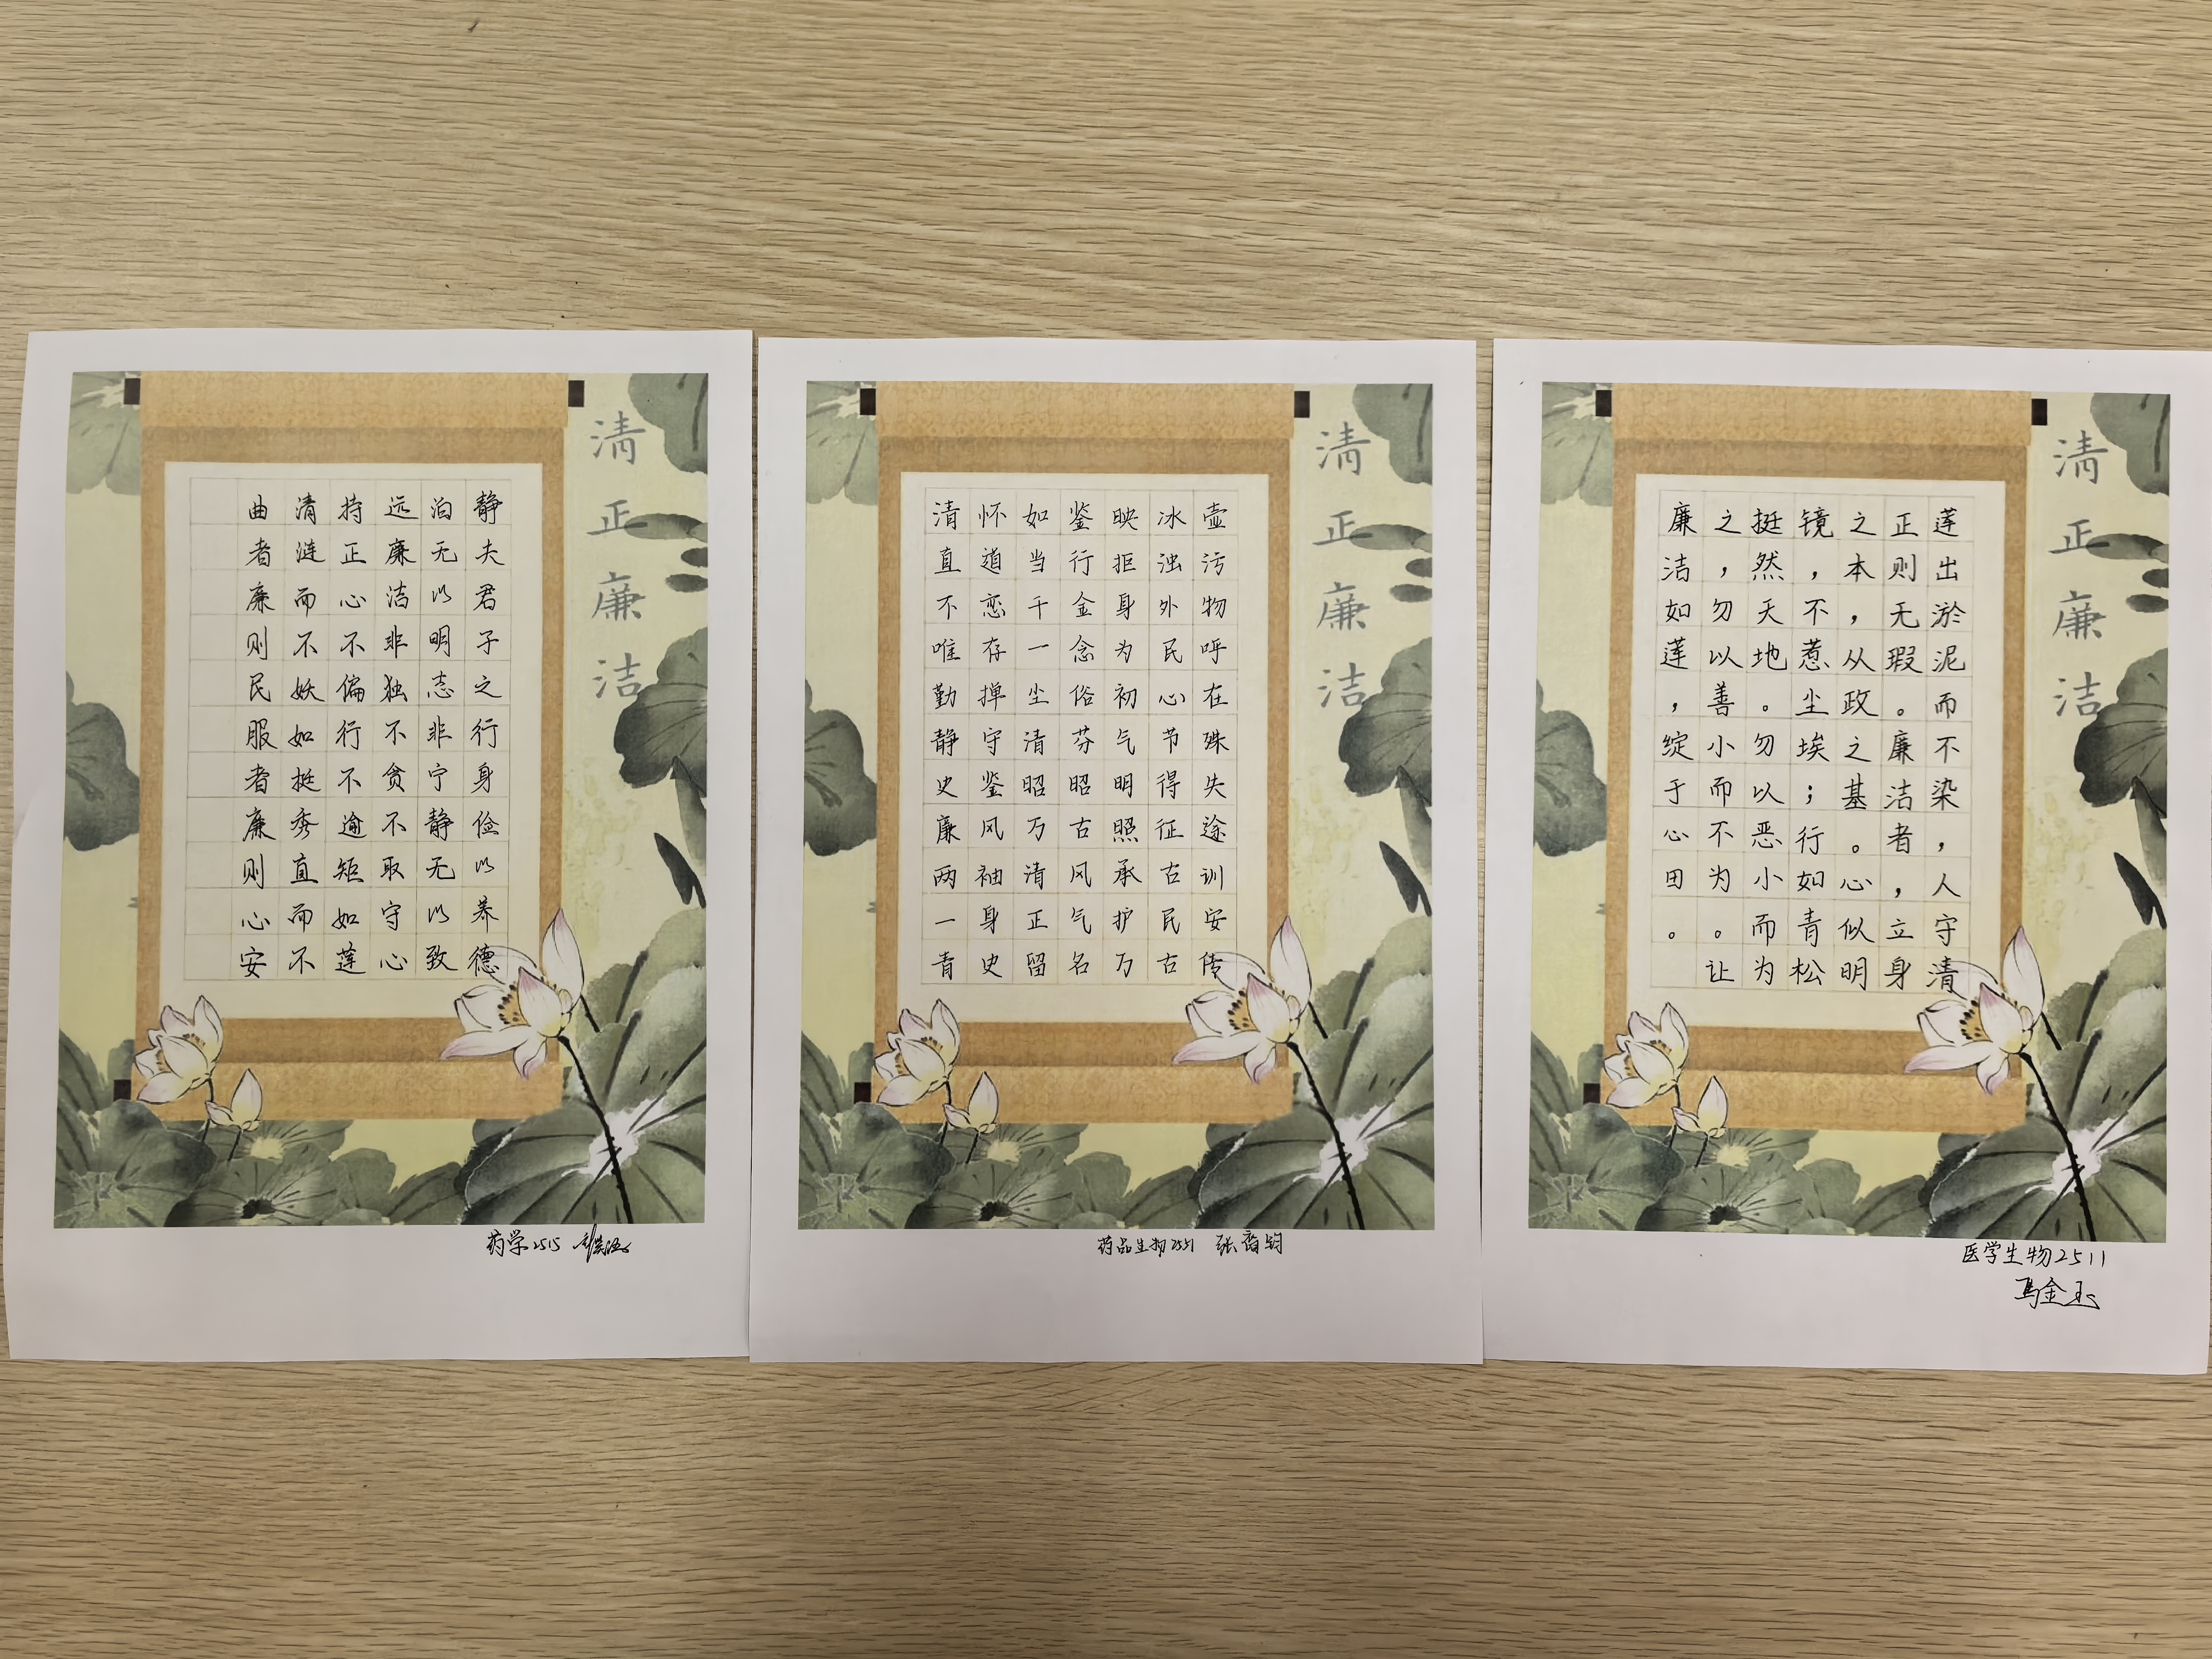 清正廉洁
静夫君子之行身俭以养德
泊无以明志非宁静无以致
远廉洁非独不贪不取守心
持正心不偏行不逾矩如莲
清涟而不妖如挺秀直而不
曲者廉则民服者廉则心安
药学2515
清正廉洁
清怀如鉴映冰壶
直道当行拒浊污
不恋千金身外物
唯存一念为民呼
勤掸尘俗初心在
静守清芬气节殊
史鉴昭昭明得失
廉风万古照征途
两袖清风承古训
一身正气护民安
青史留名万古传
药品生物2551 张
清正廉洁
莲出淤泥而不染，人守清
正则无瑕。廉洁者，立身
之本，从政之基。心似明
镜，不惹尘埃；行如青松
挺然天地。勿以恶小而为
之，勿以善小而不为。让
廉洁如莲，绽于心田。
医学生物2511
马金玉